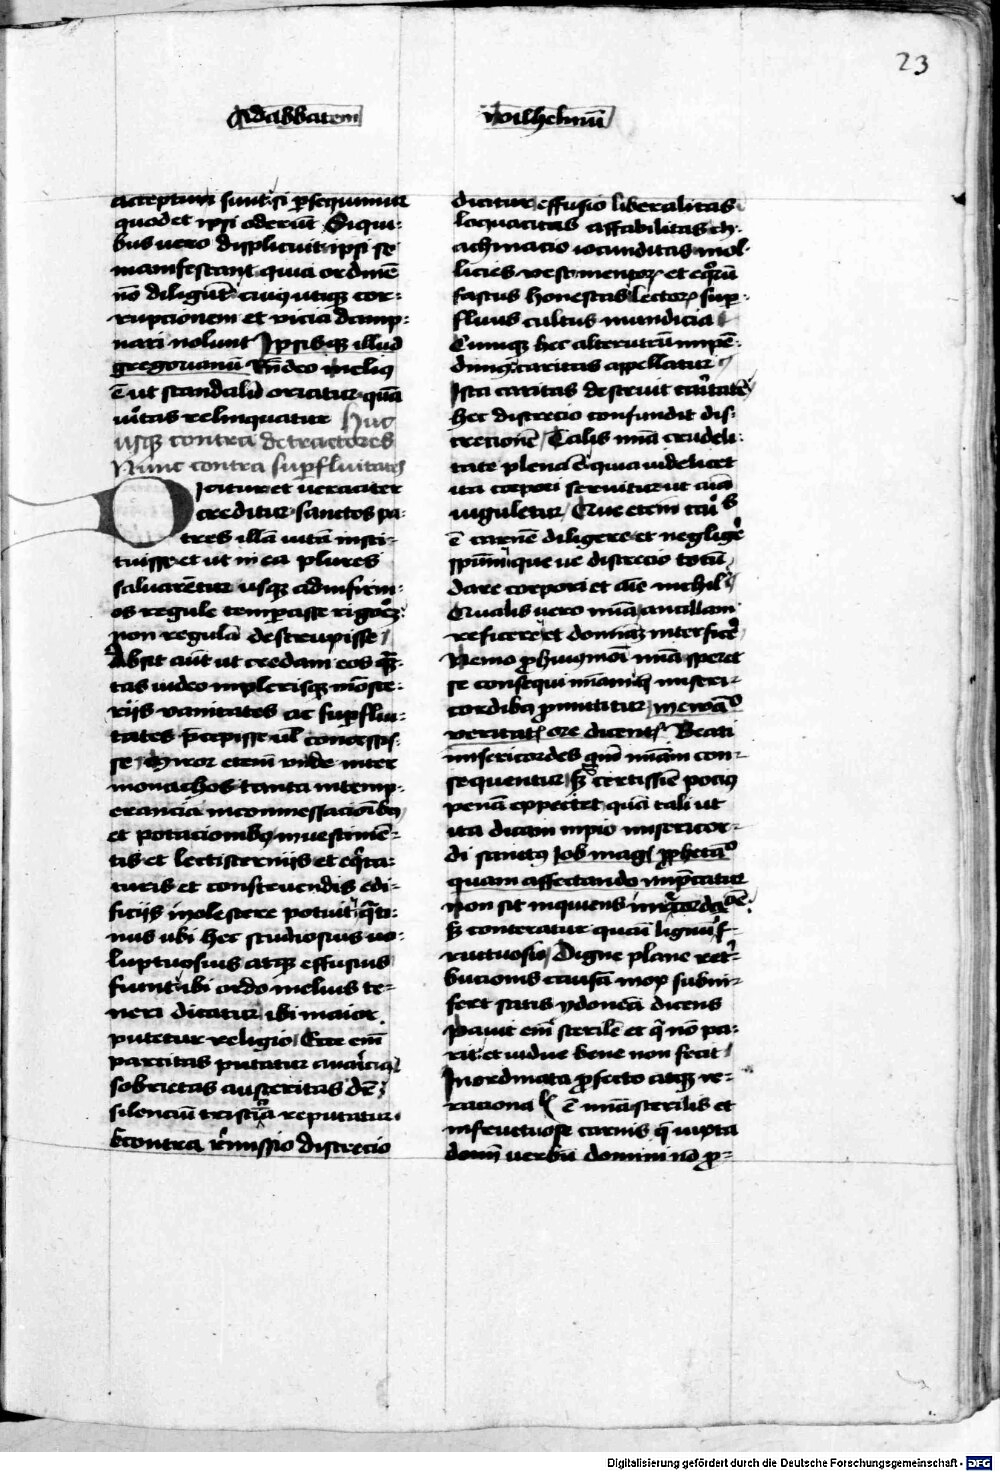 23
Ad abbatem Wilhelmū
acceptum sunt si ꝑsequimur
quod et ipsi oderūt Si qui-
bus vero displicuit ipsi se
manifestant quia ordinē
nō diligūt cuiꝰ utiqꝫ cor-
rupcionem et vicia damp-
nari nolunt Ipsisqꝫ illud
gregorianū Rn̄deo meliꝰ
ē ut scandalū oriatur quā
vītas relinquatur Huc
usqꝫ contra detractores
Nunc contra suꝑfluitates
Dicitur et veraciter
creditur sanctos pa-
tres illā vitā insti-
tuisse et ut in ea plures
salvarētur usqꝫ ad infirm-
os regule temꝑasse rigorē
non regulā destruxisse
Absit aūt ut credam eos qꝫ̄-
tas video in plerisqꝫ mōste-
riis vanitates ac suꝑflui-
tates p̄cepisse vl̄ concessis-
se Miror etem̄ unde inter
monachos tanta intemp-
erancia in comessacioībꝰ
et potacionibꝰ in vestimē-
tis et lectisterniis et eq̄ta-
turis et construendis edi-
ficiis inolescere potuit q̄te-
nus ubi hec studiosius vo-
luptuosius atqꝫ effusius
fiunt ibi ordo melius te-
neri dicatur ibi maior
putetur religio Ecce em̄
parcitas putatur avaricia
sobrietas austeritas cr̄e
silenciū tristicia reputatur
Econtra rēmissio discrecio
dicitur effusio liberalitas
loquacitas affabilitas ch-
achinacio iocunditas mol-
licies vestimentorꝝ et eqͦrū
fastus honestas lectorꝝ suꝑ-
fluus cultus mundicia
Cumqꝫ hec alterutrū inpē-
dimꝰ caritas appellatur
Ista caritas destruit caritatē
hec discrecio confundit dis-
crecionē Talis mīa crudeli-
tate plena ē qua videlicet
ita corpori servitur ut aīa
iuguletur Que etem̄ caritas
ē carnē diligere et negligere
spm̄ que ve discrecio totū
dare corpori et aīe nichil
Qualis vero mīa ancillam
reficere et dominā interficere
Nemo ꝓ huiꝰmōi mīa speret
se consequi mīam q̄ miseri-
cordibꝰ promittitur in ewāgͦ
veritatꝭ ore dicentꝭ Beati
misericordes qm̄ mīam con-
sequentur sꝫ certissiē pociꝰ
penā expectet quā tali ut
ita dicam inpio misericor-
di sanctꝰ Iob magꝭ ꝓphetādͦ
quam affectando inp̄catur
non sit inquiens in recordacioē
sꝫ conteratur quasi lignū īf-
ructuosū Digne plane retͥ-
bucionis causā mox subin-
fert satis ydoneā dicens
Pavit em̄ sterilē et q̄ nō pa-
rit et vidue bene non fecit
Inordinata ꝓfecto atqꝫ ir-
racionalꝭ ē mīa sterilis et
infructuose carnis q̄ iuxta
dom̄ verbū domini nō ꝓ-
Digitalisierung gefördert durch die Deutsche Forschungsgemeinschaft - DFG